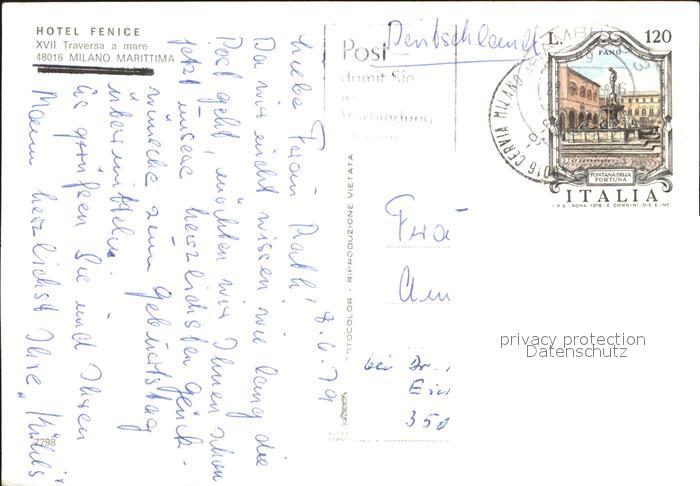 HOTEL FENICE
XVII Traversa a mare
48016 MILANO MARITTIMA
Liebe Fräu Rathi 8.6.79
Da wir nicht wissen wie lang die
Post geht, möchten wir Ihnen schon
jetzt unsere herzlichsten Glück-
wünsche zum Geburtstag
übermitteln.
Es grüßen Sie und Ihren
Mann herzlichst Ihre
7798
OTOCOLOR - RIPRODUZIONE VIETATA
Post
damit Sie
in
Verbindung
Deutschland
48016 CERVIA MILANO
L. 120
FANO
FONTANA DELLA
FORTUNA
ITALIA
I.P.S. ROMA 1978 E. DONNINI DIS. E INC.
Frä
Am
bei Dr.
350
privacy protection
Datenschutz